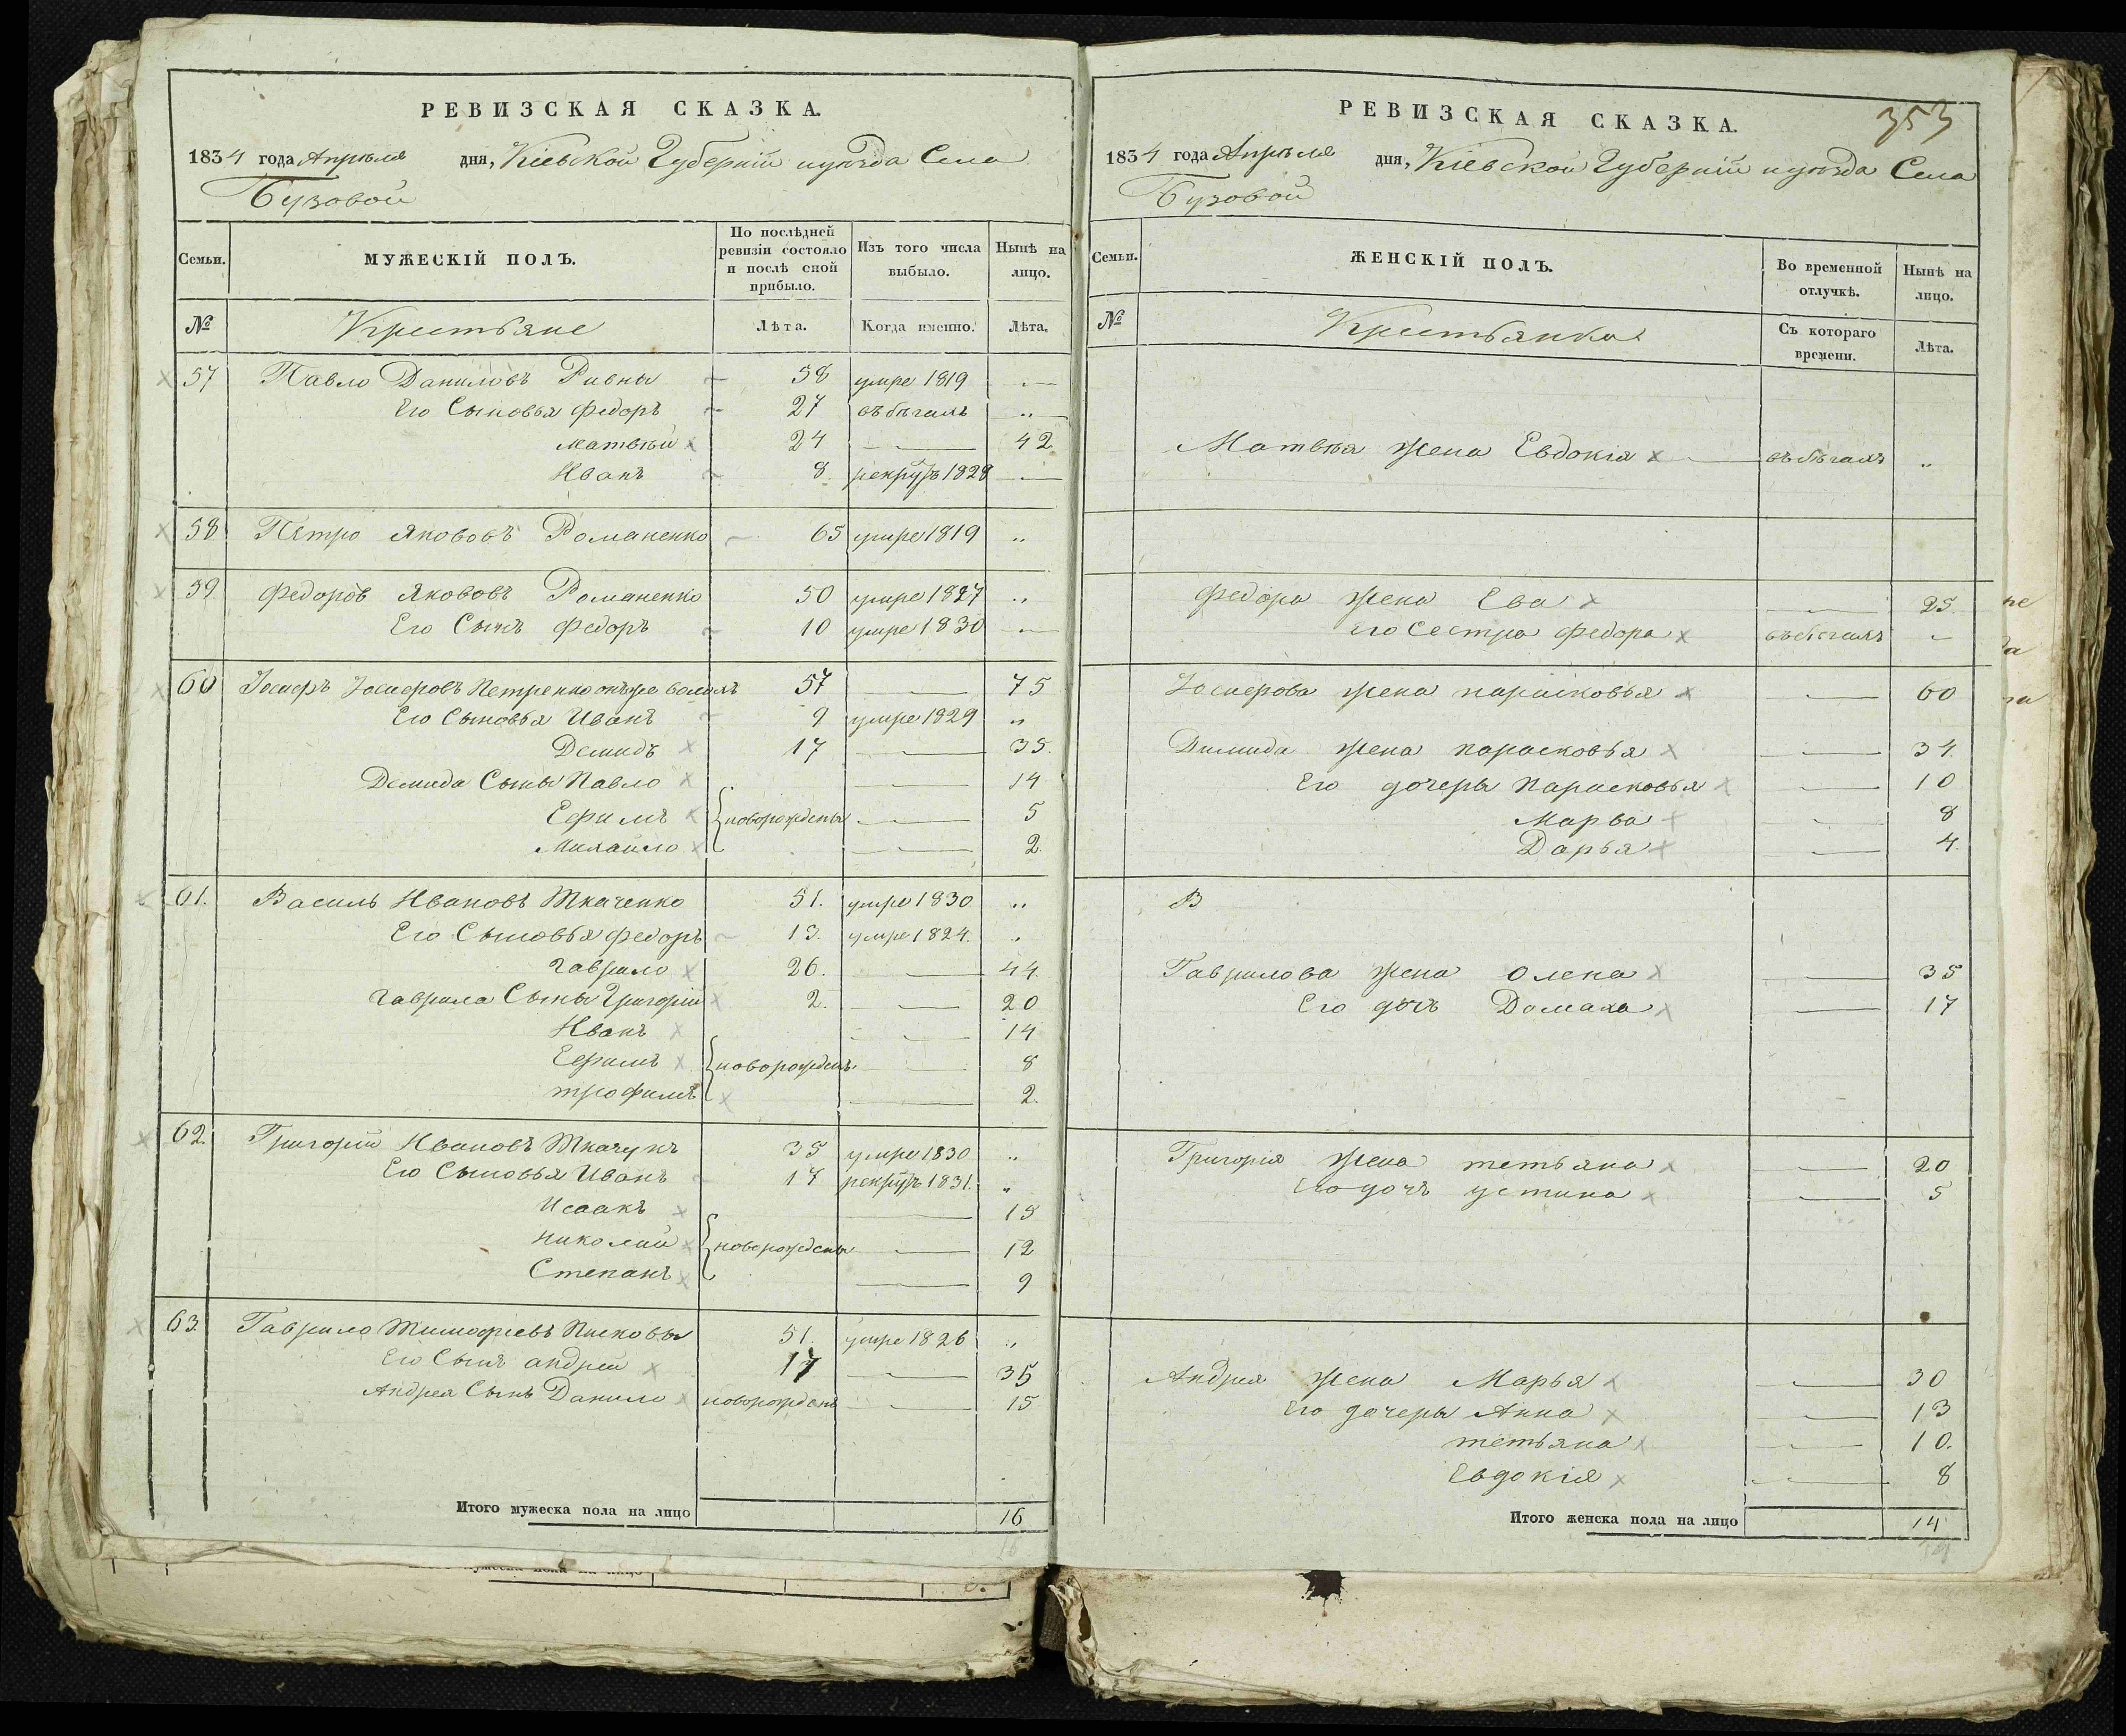 РЕВИЗСКАЯ СКАЗКА.
1834 года Апреля дня, Кіевской Губерніи и уѣзда Села
Бузовой
Семьи. МУЖЕСКІЙ ПОЛЪ. По послѣдней ревизіи состояло и послѣ сной прибыло. Изъ того числа выбыло. Нынѣ на лицо.
№ Крестьяне Лѣта. Когда именно. Лѣта.
57 Павло Даниловъ 58 умре 1819
Его Сыновья Федоръ 27 въ бѣгахъ
Матвѣй 24 42
Иванъ 8 рекрутъ 1828
58 Петро Якововъ Романенко 65 умре 1819
59 Федоръ Якововъ Романенко 50 умре 1827
Его Сынъ Федоръ 10 умре 1830
60 Іосифъ Іосифовъ Петренко онъ же 57 75
Его Сыновья Иванъ 9 умре 1829
Демидъ 17 35.
Демида Сыны Павло 14
Ефимъ новорождены 5
Михайло 2.
61. Василь Ивановъ Ткаченко 51. умре 1830
Его Сыновья Федоръ 13. умре 1824.
Гаврило 26. 44.
Гаврила Сыны Григорій 2. 20
Иванъ 14
Ефимъ новорожден. 8
Трофимъ 2.
62. Григорій Ивановъ Ткачукъ 35 умре 1830
Его Сыновья Иванъ 17 рекрутъ 1831.
Исаакъ 15
Николай новорождены 12
Степанъ 9
63. Гаврило Тимофѣевъ 51. умре 1826
Его Сынъ андрей 17 35
Андрея Сынъ Данило новорожденъ 15
Итого мужеска пола на лицо 16
16
353
РЕВИЗСКАЯ СКАЗКА.
1834 года Апреля дня, Кіевской Губерніи и уѣзда Села
Бузовой
Семьи. ЖЕНСКІЙ ПОЛЪ. Во временной отлучкѣ. Нынѣ на лицо.
№ Крестьянки Съ котораго времени. Лѣта.
Матвѣя жена Евдокія въ бѣгахъ
Федора жена Ева 25.
Его Сестра Федора въ бѣгахъ
Іосифова жена парасковья 60
Димида жена парасковья 34.
Его дочеры Парасковья 10
Марва 8
Дарья 4.
В
Гаврилова жена Олена 35
Его дочь Домаха 17
Григорія жена тетьяна 20
Его дочъ устина 5
Андрея жена Марья 30
Его дочеры Анна 13
тетьяна 10.
Евдокія 8
Итого женска пола на лицо 14